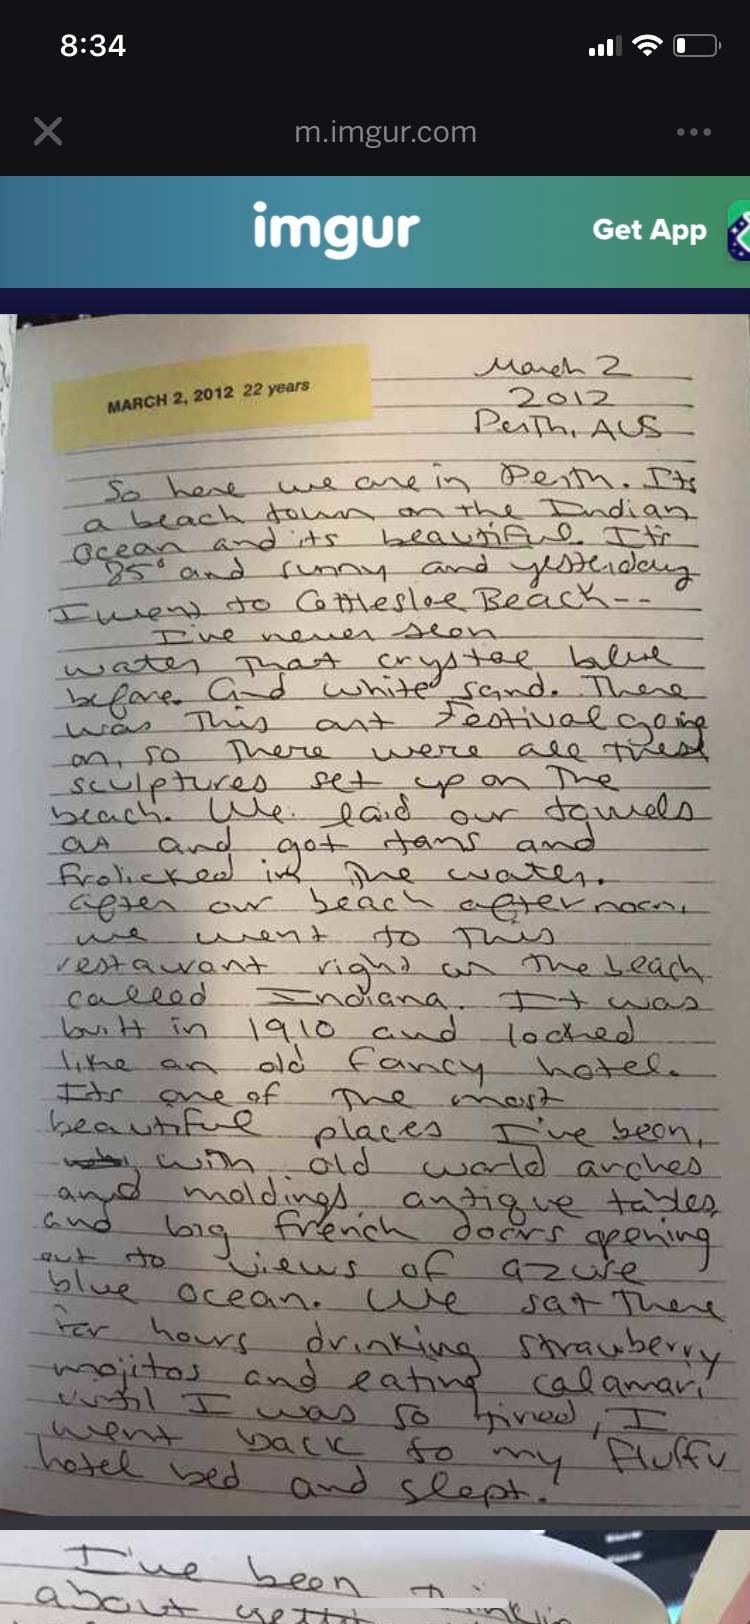 8:34
m.imgur.com
imgur
Get App
MARCH 2, 2012 22 years
March 2
2012
Perth, AUS
So here we are in Perth. Its
a beach town on the Indian
Ocean and its beautiful. It's
85° and sunny and yesterday
I went to Cottlesloe Beach--
I've never seen
water that crystal blue
before. And white sand. There
was this art festival going
on, so there were all these
sculptures set up on the
beach. We laid our towels
out and got tans and
frolicked in the water.
After our beach afternoon,
we went to this
restaurant right on the beach
called Indiana. It was
built in 1910 and looked
like an old fancy hotel.
Its one of the most
beautiful places I've been,
with old world arches
and moldings, antique tables,
and big french doors opening
out to views of azure
blue ocean. We sat there
for hours drinking strawberry
mojitos and eating calamari
until I was so tired, I
went back to my fluffy
hotel bed and slept.
I've been
about